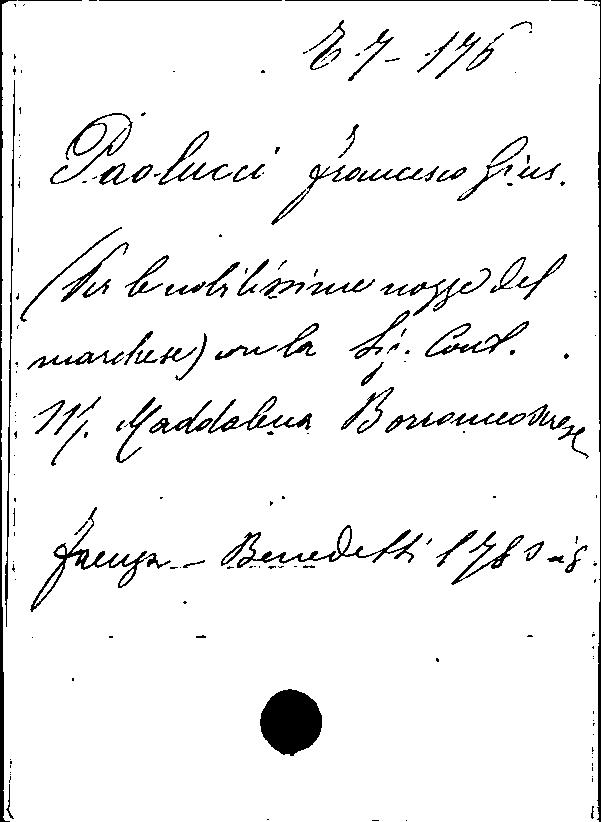 E 7 - 176
Paolucci Francesco Gius.
(Per le nobilissime nozze del
marchese) con la Sig. Cont.
M. Maddalena Borromeo
Faenza - Benedetti 1780 in 8.